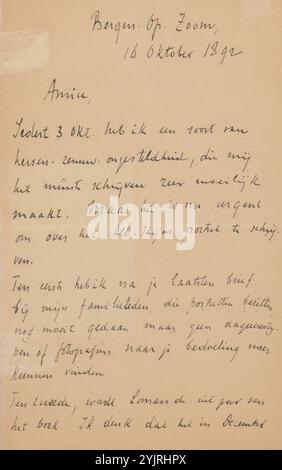 Bergen-Op-Zoom,
16 Oktober 1892
Amice,
Sedert 3 Okt. heb ik een soort van
hersen-zenuw-ongesteldheid, die mij
het minste schrijven zeer moeilijk
maakt. Maar het is nu urgent
om over het portret te schrij
ven.
Ten eerste heb ik na je laatsten brief
bij mijn familieleden, die portretten bezitten
nog moeite gedaan maar geen daguerreoty
pen of fotografiën naar je bedoeling meer
kunnen vinden.
Ten tweede, wordt
het boek. Ik denk dat het in December
alamy
Image ID: 2YJRHPX
www.alamy.com